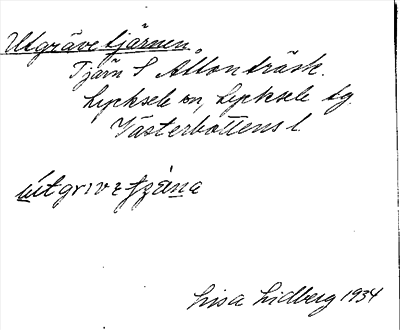 Utgrävetjärnen.
Tjärn S Altonträsk.
Lycksele sn, Lycksele tg
Västerbottens l.
Lisa Lidberg 1934